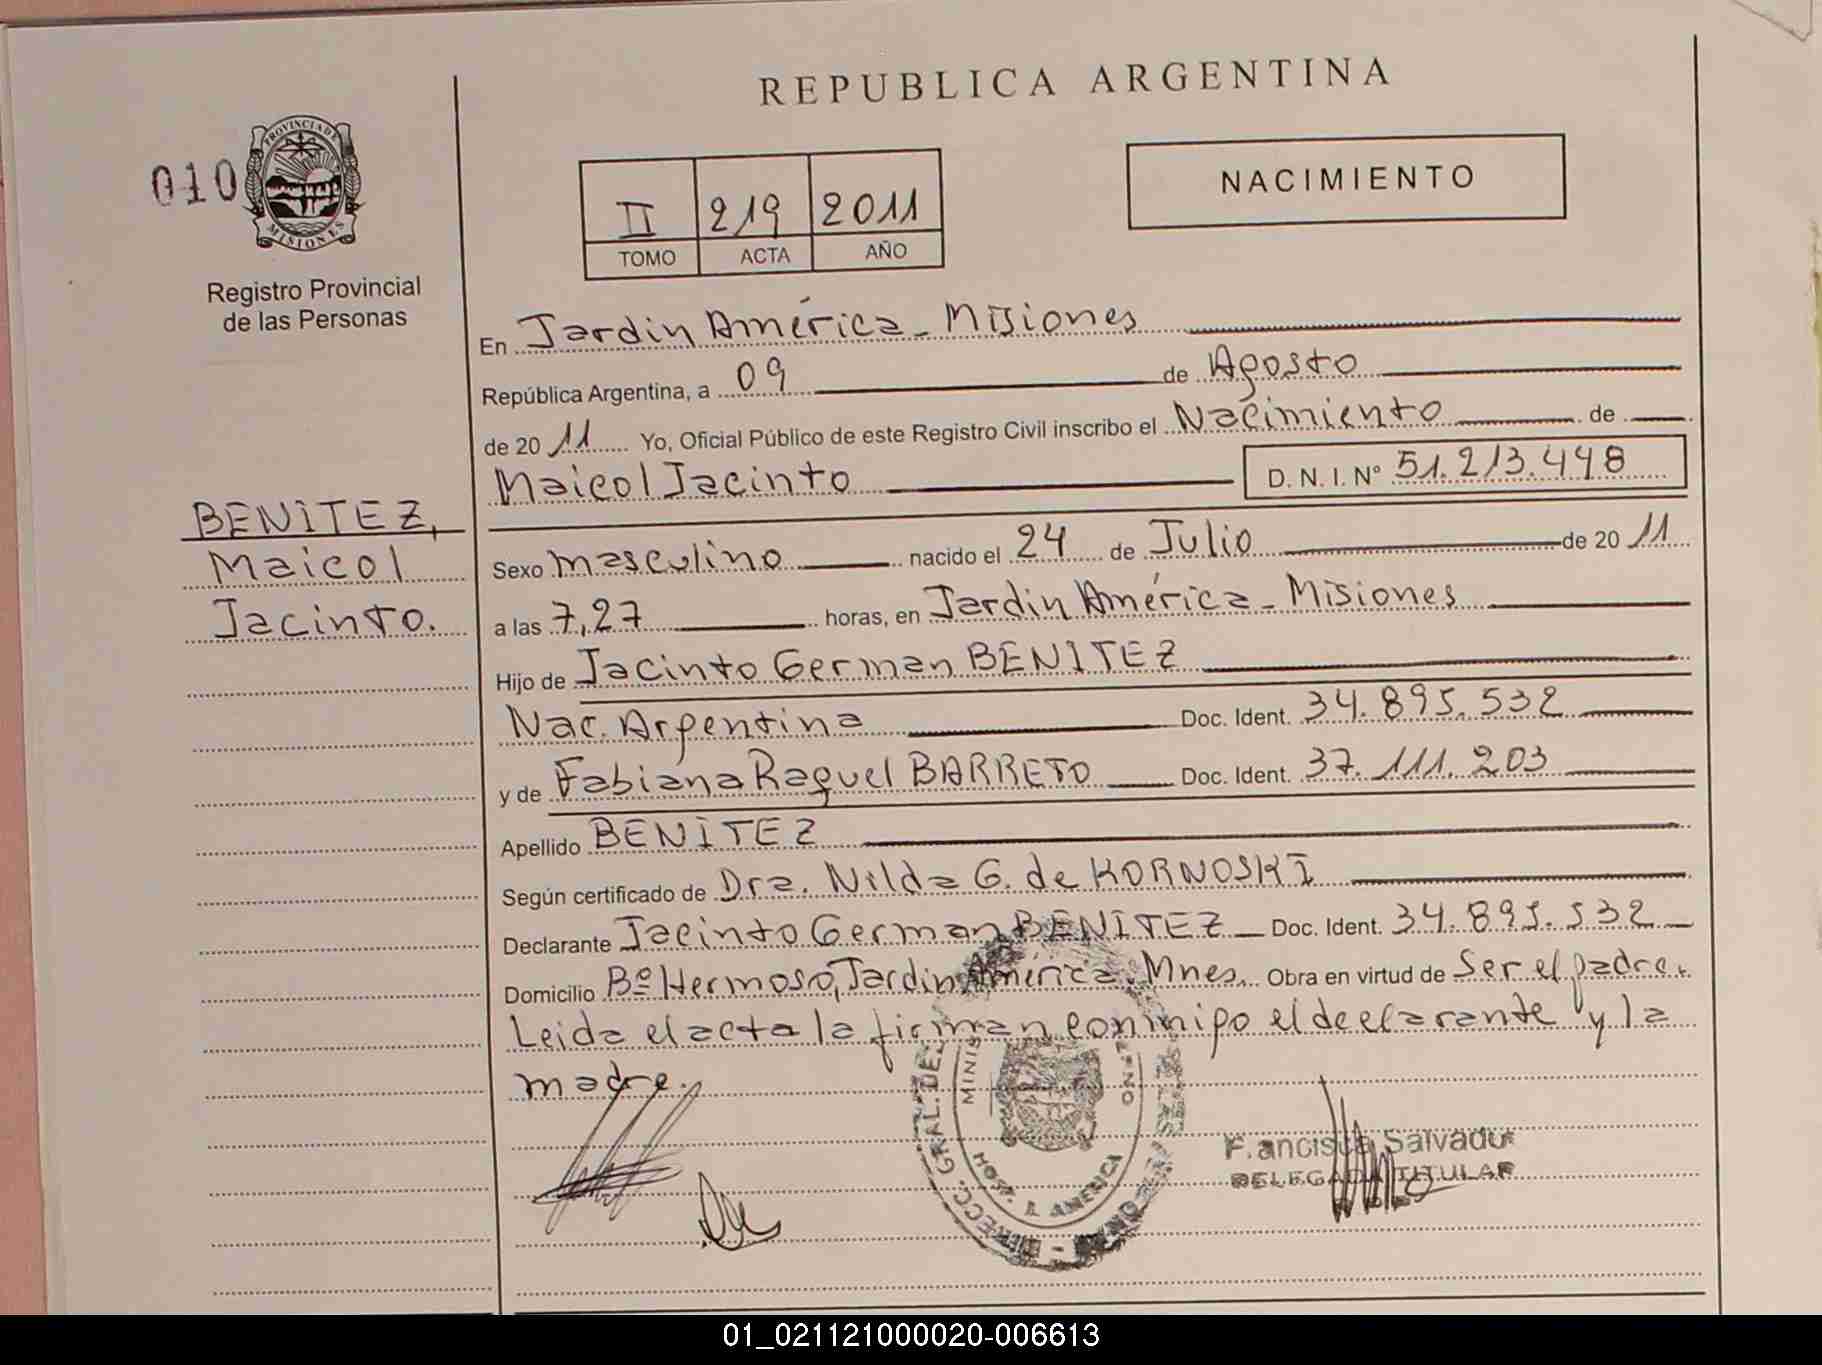 REPUBLICA ARGENTINA
010
PROVINCIA DE
MISIONES
Registro Provincial
de las Personas
NACIMIENTO
II 219 2011
TOMO ACTA AÑO
En Jardin América - Misiones
República Argentina, a 09 de Agosto
de 2011 Yo, Oficial Público de este Registro Civil inscribo el Nacimiento de
Maicol Jacinto D. N. I. Nº 51.213.498
BENITEZ,
Maicol
Jacinto.
Sexo masculino nacido el 24 de Julio de 2011
a las 7,27 horas, en Jardin América - Misiones
Hijo de Jacinto German BENITEZ
Nac. Argentina Doc. Ident. 34.895.532
y de Fabiana Raquel BARRETO Doc. Ident. 37.111.203
Apellido BENITEZ
Según certificado de Dra. Nilda G. de KORNOSKI
Declarante Jacinto German BENITEZ Doc. Ident. 34.895.532
Domicilio Bº Hermoso, Jardin América, Mnes. Obra en virtud de Ser el padre.
Leida el acta la firman conmigo el declarante y la
madre.
DIRECC. GRAL. DEL
MINIS
HOSP. J. AMERICA
Salvador
DELEGADA TITULAR
01_021121000020-006613